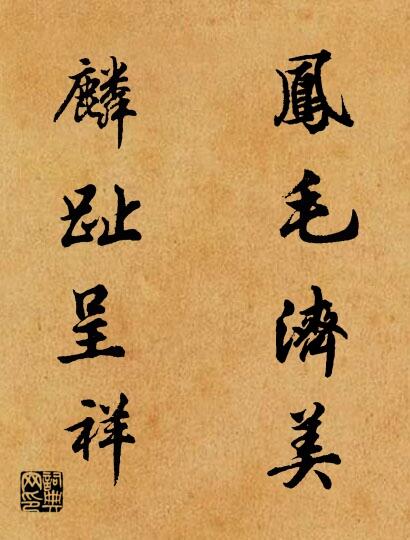 鳳毛濟美
麟趾呈祥
詞典网印